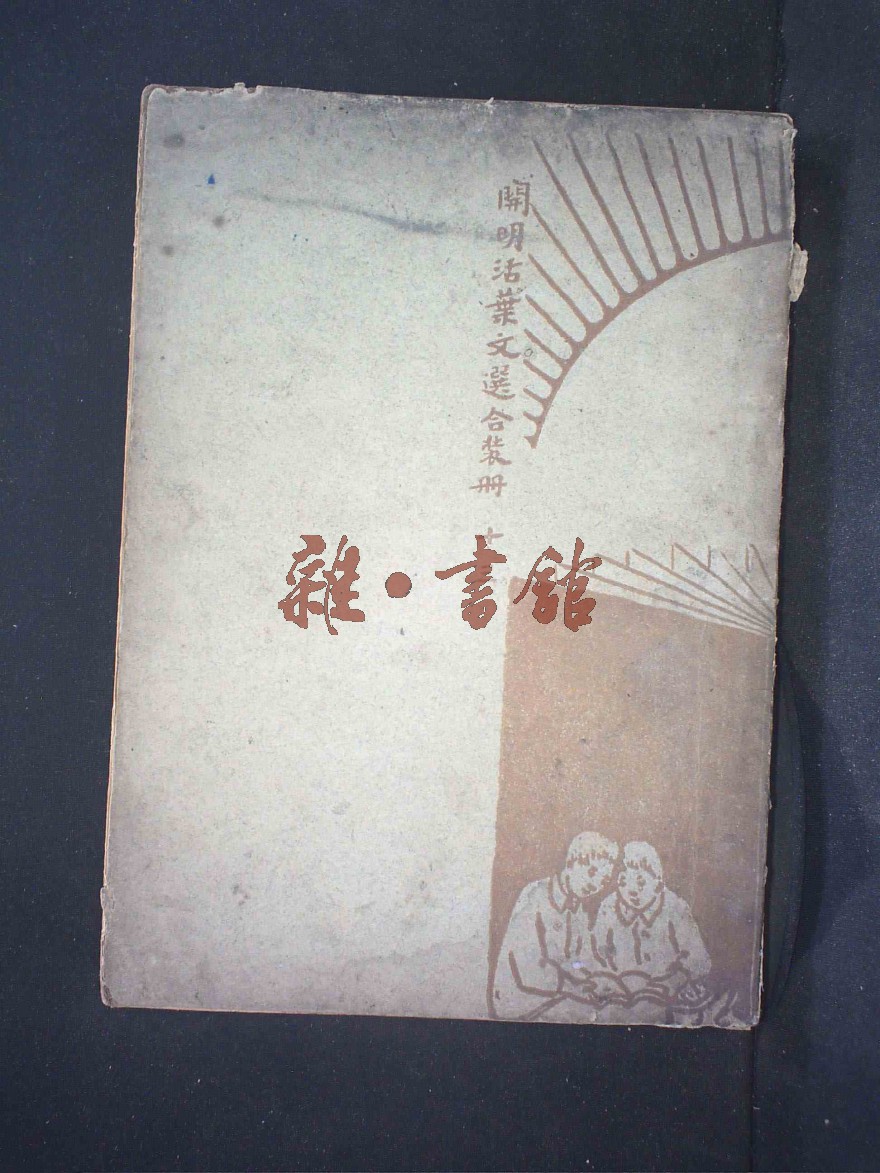 開明活葉文選合裝冊 十
雜·書館